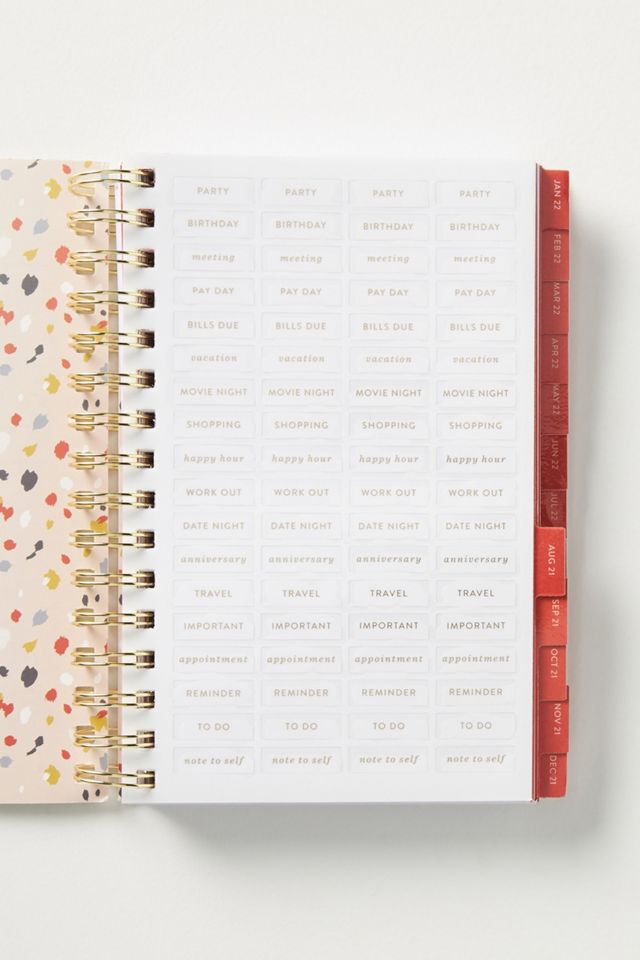 PARTY PARTY PARTY PARTY
BIRTHDAY BIRTHDAY BIRTHDAY BIRTHDAY
meeting meeting meeting meeting
PAY DAY PAY DAY PAY DAY PAY DAY
BILLS DUE BILLS DUE BILLS DUE BILLS DUE
vacation vacation vacation vacation
MOVIE NIGHT MOVIE NIGHT MOVIE NIGHT MOVIE NIGHT
SHOPPING SHOPPING SHOPPING SHOPPING
happy hour happy hour happy hour happy hour
WORK OUT WORK OUT WORK OUT WORK OUT
DATE NIGHT DATE NIGHT DATE NIGHT DATE NIGHT
anniversary anniversary anniversary anniversary
TRAVEL TRAVEL TRAVEL TRAVEL
IMPORTANT IMPORTANT IMPORTANT IMPORTANT
appointment appointment appointment appointment
REMINDER REMINDER REMINDER REMINDER
TO DO TO DO TO DO TO DO
note to self note to self note to self note to self
JAN 22
FEB 22
MAR 22
APR 22
MAY 22
JUN 22
JUL 22
AUG 21
SEP 21
OCT 21
NOV 21
DEC 21